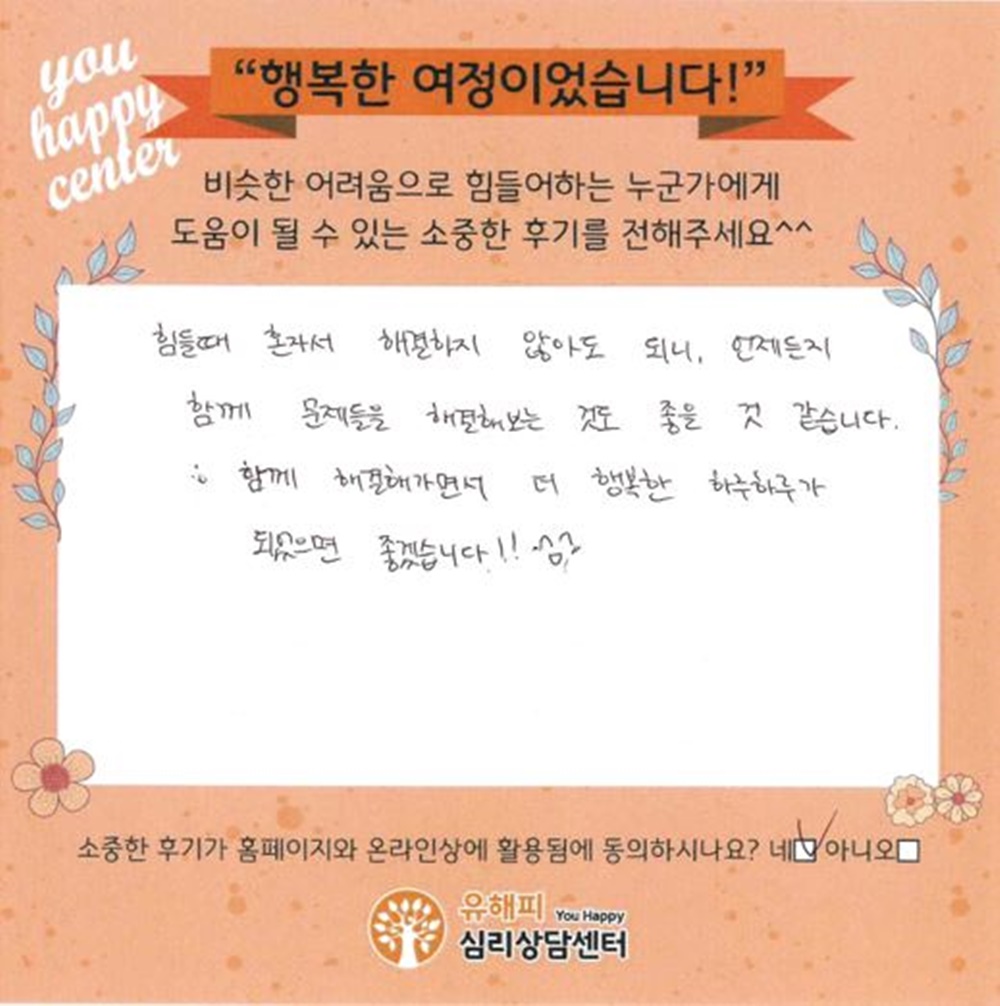 you
happy
center
“행복한 여정이었습니다!”
비슷한 어려움으로 힘들어하는 누군가에게
도움이 될 수 있는 소중한 후기를 전해주세요^^
힘들때 혼자서 해결하지 않아도 되니, 언제든지
함께 문제들을 해결해보는 것도 좋을 것 같습니다.
함께 해결해가면서 더 행복한 하루하루가
되었으면 좋겠습니다!!
소중한 후기가 홈페이지와 온라인상에 활용됨에 동의하시나요? 네 아니오
유해피 You Happy
심리상담센터